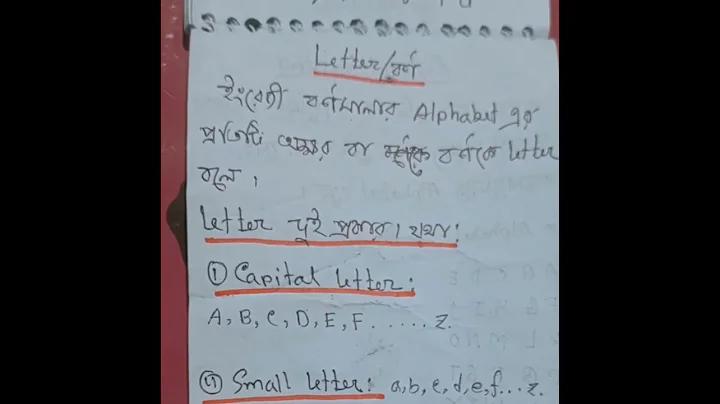 Letter/বর্ণ
ইংরেজী বর্ণমালার Alphabet এর
প্রতিটি অক্ষর বা বর্ণকে letter
বলে।
Letter দুই প্রকার। যথা:
① Capital letter:
A, B, C, D, E, F......Z.
② Small letter: a, b, c, d, e, f...z.